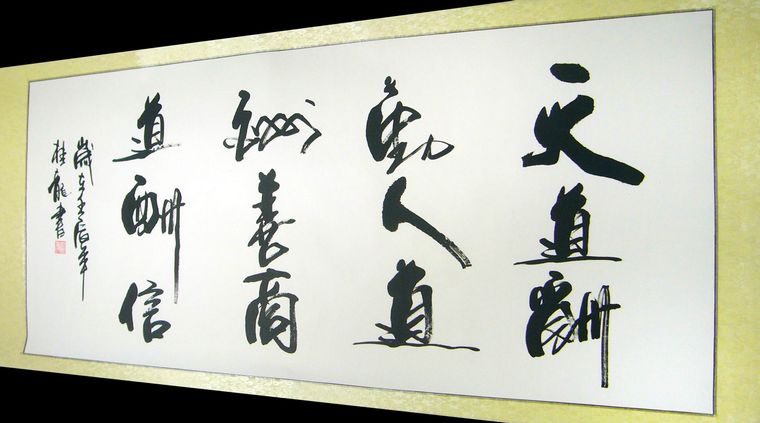 天道酬
勤人道
酬善商
道酬信
歲在壬辰年
桂龍書